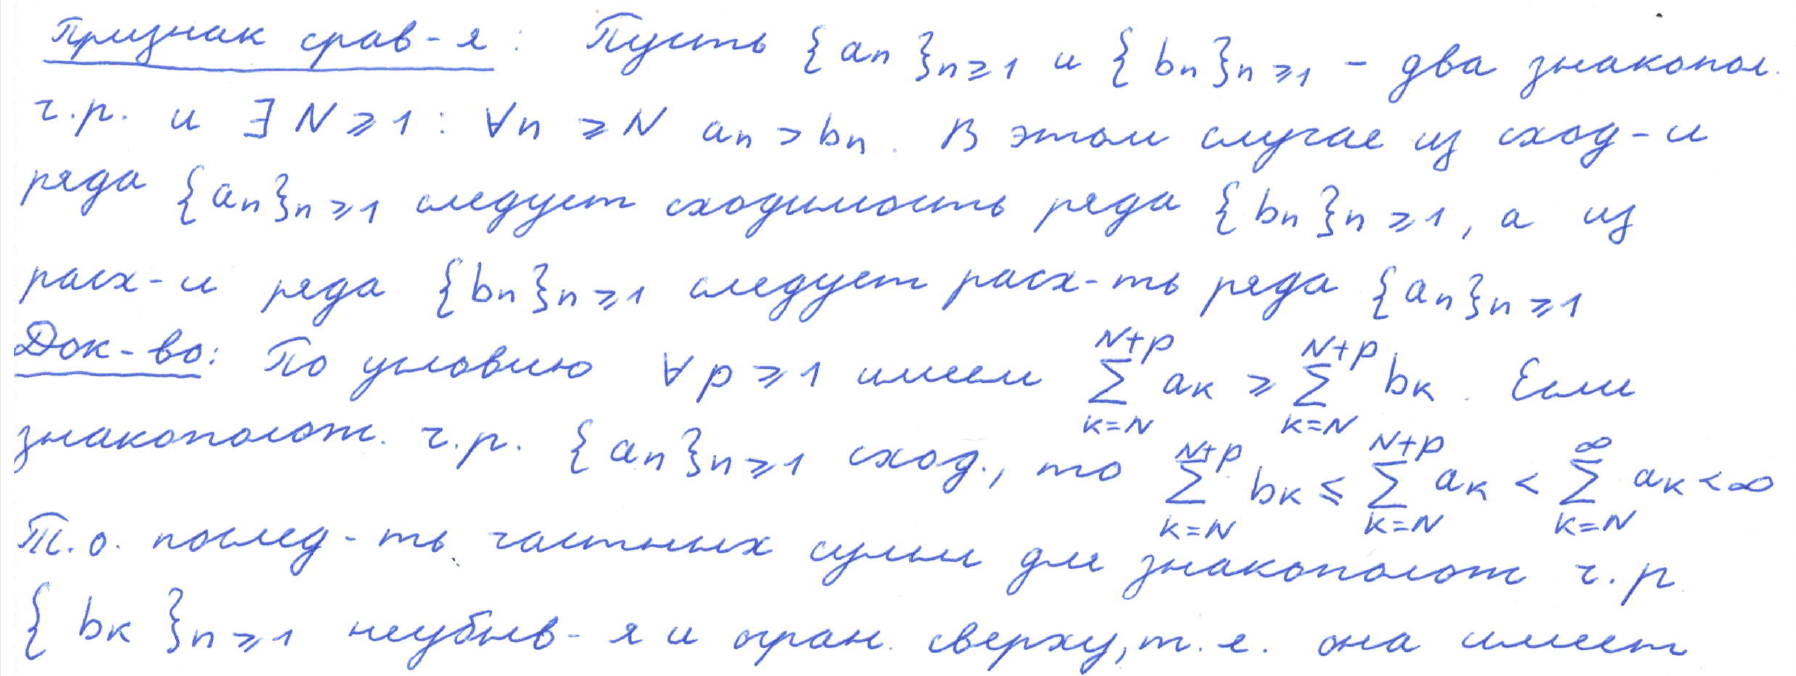 Признак срав-я: Пусть {aₙ}ₙ≥1 и {bₙ}ₙ≥1 – два знакопол.
ч.р. и ∃ N≥1: ∀n ≥N aₙ>bₙ. В этом случае из сход-и
ряда {aₙ}ₙ≥1 следует сходимость ряда {bₙ}ₙ≥1, а из
расх-и ряда {bₙ}ₙ≥1 следует расх-ть ряда {aₙ}ₙ≥1
Док-во: По условию ∀p≥1 имеем ∑_{k=N}^{N+p} aₖ ≥ ∑_{k=N}^{N+p} bₖ. Если
знакополож. ч.р. {aₙ}ₙ≥1 сход., то ∑_{k=N}^{N+p} bₖ ≤ ∑_{k=N}^{N+p} aₖ < ∑_{k=N}^{∞} aₖ < ∞
Т.о. послед-ть частных сумм для знакополож ч.р.
{bₖ}ₙ≥1 неубыв-я и огран. сверху, т.е. она имеет